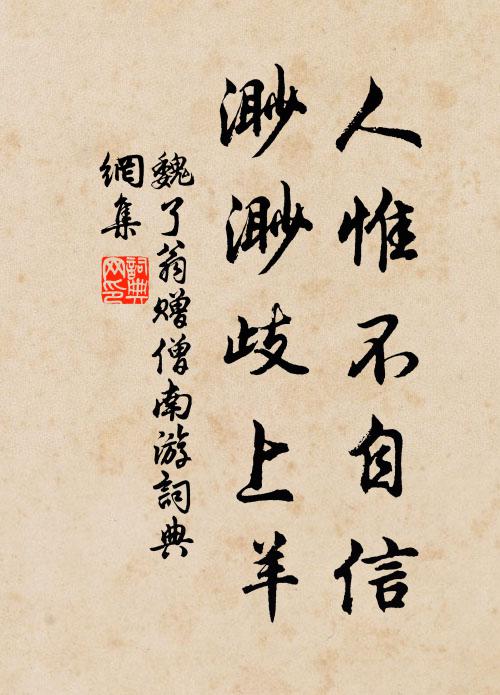 人惟不自信
渺渺歧上羊
魏了翁赠僧南游詞典
網集
詞典網印